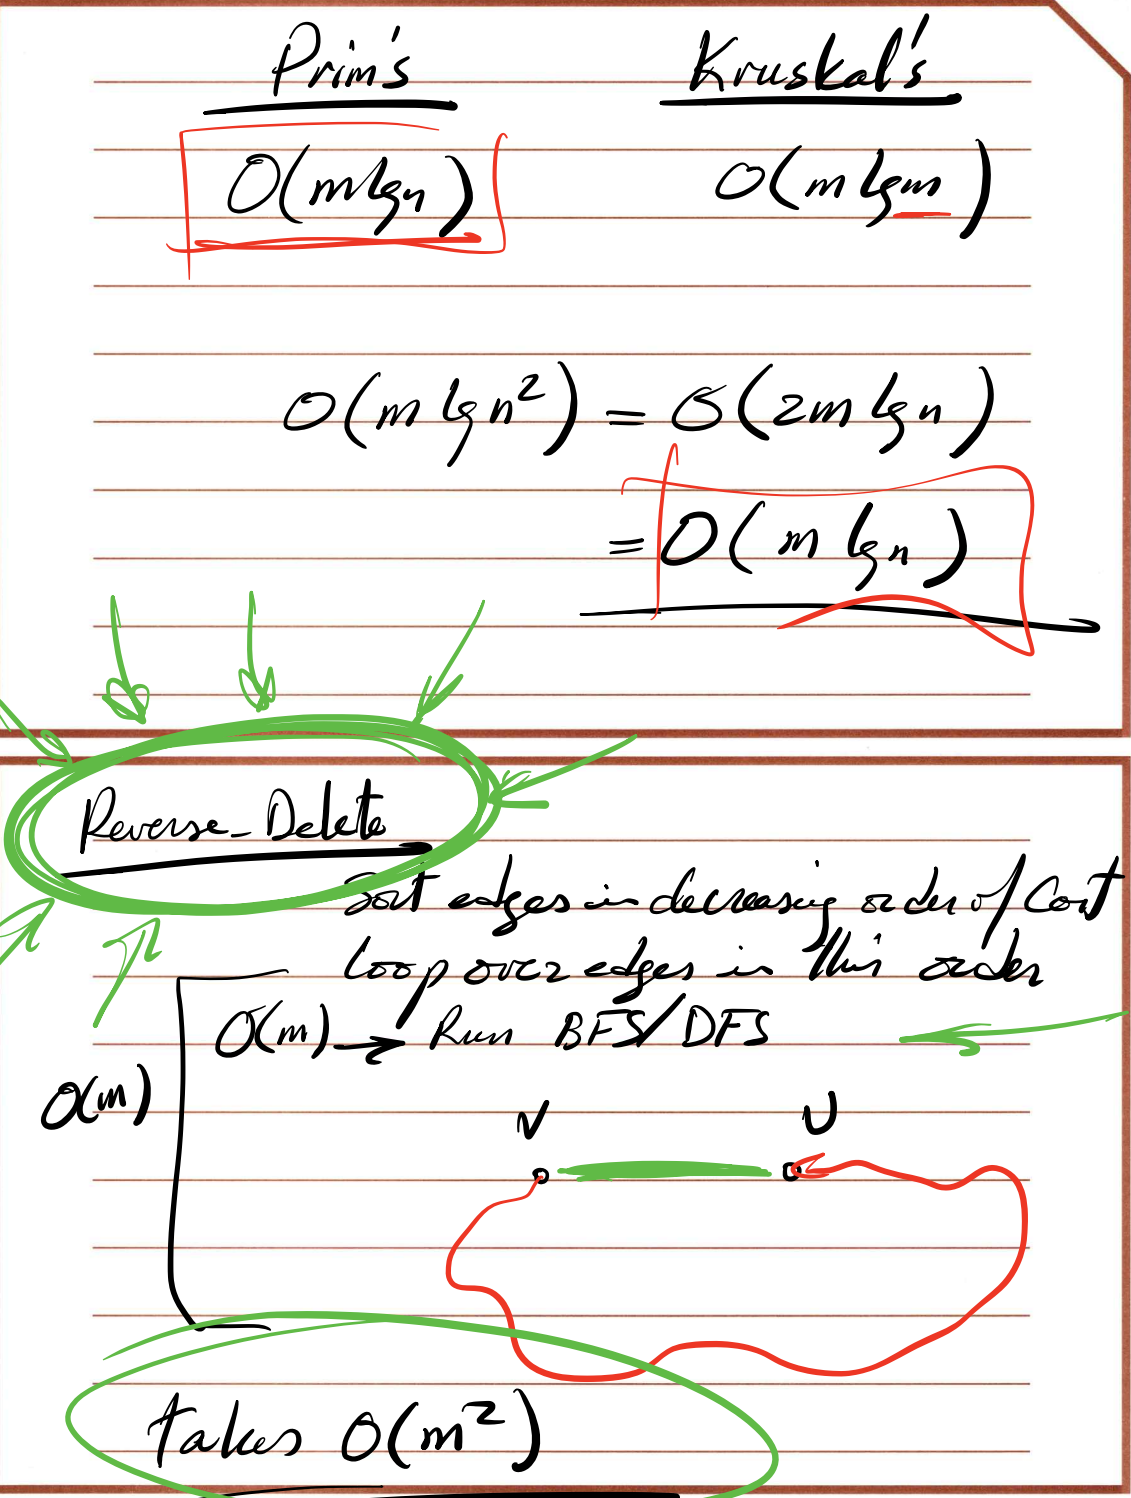 Prim's Kruskal's
O(m lg n) O(m lg m)
O(m lg n²) = O(2m lg n)
= O(m lg n)
Reverse-Delete
Sort edges in decreasing order of Cost
loop over edges in this order
O(m) → Run BFS/DFS
O(m)
V U
takes O(m²)